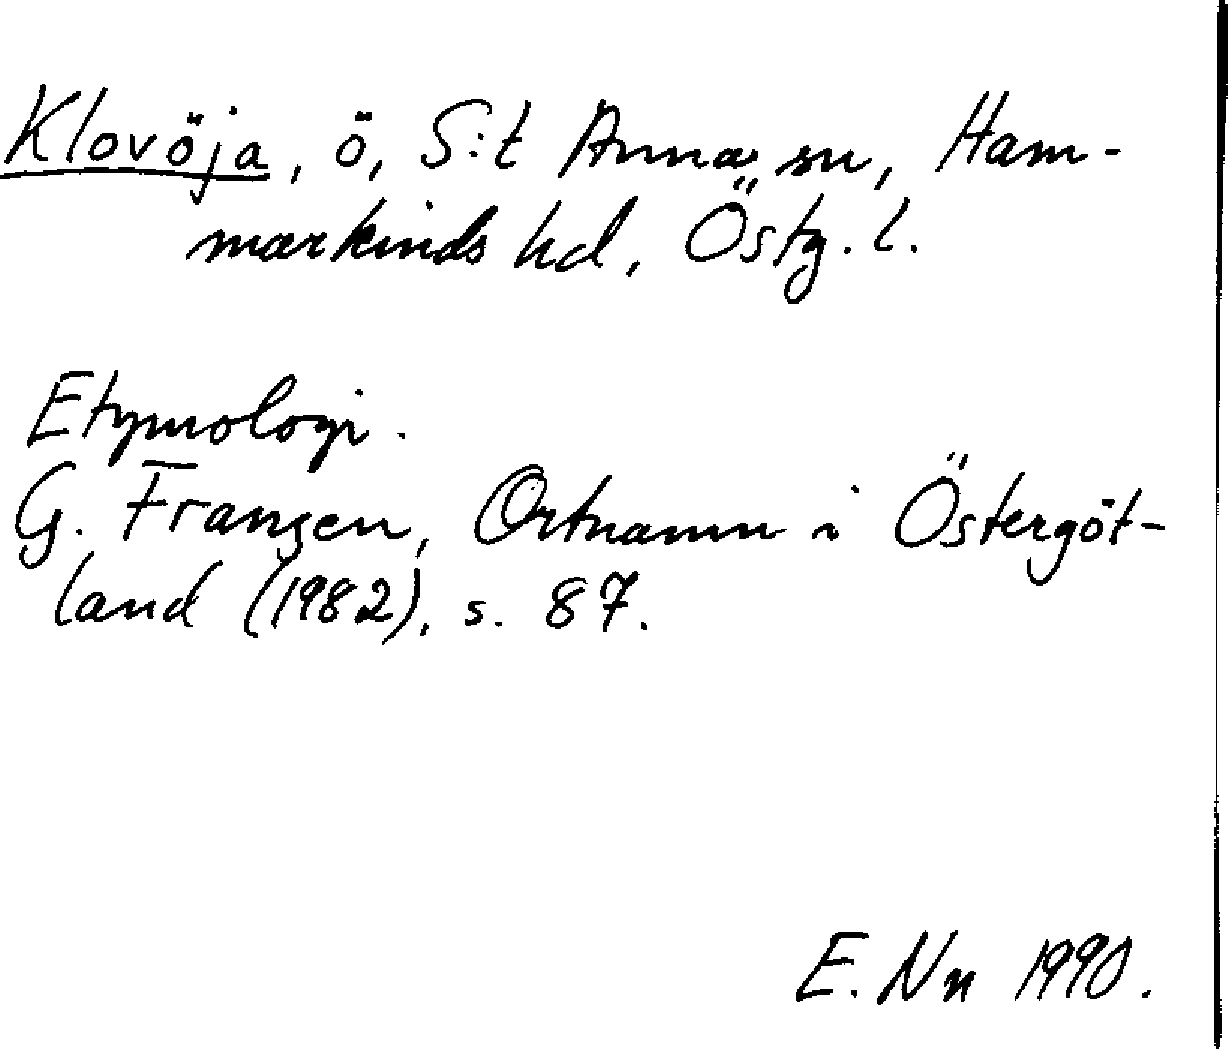 Klovöja, ö, S:t Anna sn, Ham-
markinds hd, Östg. l.
Etymologi.
G. Franzen, Ortnamn i Östergöt-
land (1982), s. 87.
E. Nn 1990.